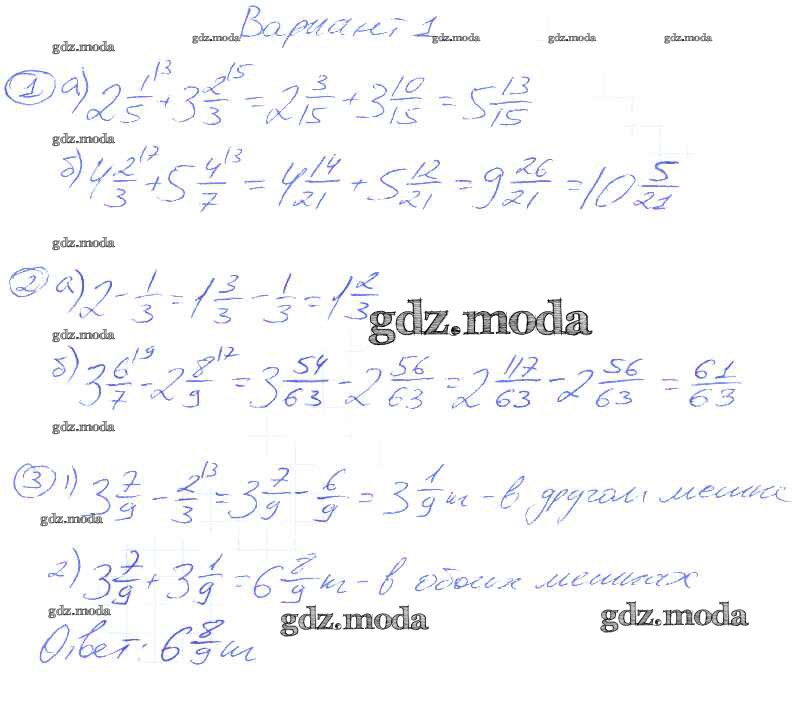 Вариант 1
gdz.moda gdz.moda gdz.moda gdz.moda gdz.moda
1 а) 2 1/5 |3 + 3 2/3 |5 = 2 3/15 + 3 10/15 = 5 13/15
gdz.moda
б) 4 2/3 |7 + 5 4/7 |3 = 4 14/21 + 5 12/21 = 9 26/21 = 10 5/21
gdz.moda
2 а) 2 - 1/3 = 1 3/3 - 1/3 = 1 2/3
gdz.moda gdz.moda
б) 3 6/7 |9 - 2 8/9 |7 = 3 54/63 - 2 56/63 = 2 117/63 - 2 56/63 = 61/63
gdz.moda
3 1) 3 7/9 - 2/3 |3 = 3 7/9 - 6/9 = 3 1/9 кг - в другом мешке
gdz.moda
2) 3 7/9 + 3 1/9 = 6 8/9 кг - в обоих мешках
gdz.moda gdz.moda gdz.moda
Ответ: 6 8/9 кг